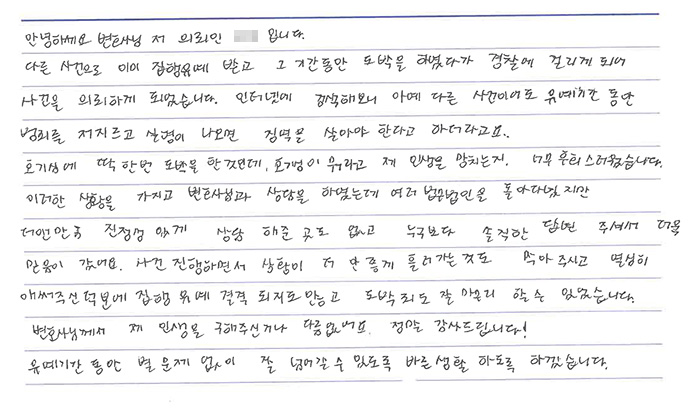 안녕하세요 변호사님 저 의뢰인 입니다.
다른 사건으로 이미 집행유예 받고 그 기간동안 도박을 하였다가 경찰에 걸리게 되어
사건을 의뢰하게 되었습니다. 인터넷에 검색해보니 아예 다른 사건이어도 유예기간 동안
범죄를 저지르고 실형이 나오면 징역을 살아야 한다고 하더라고요.
호기심에 딱 한번 도박을 한 것인데, 호기심이 뭐라고 제 인생을 망치는지, 너무 후회스러웠습니다.
이러한 상황을 가지고 변호사님과 상담을 하였는데 여러 법무법인을 돌아다녔지만
더앤만큼 진정성 있게 상담 해준 곳도 없고 누구보다 솔직한 답변 주셔서 더욱
믿음이 갔어요. 사건 진행하면서 상황이 더 안 좋게 흘러가는 것도 막아 주시고 열심히
애써주신 덕분에 집행 유예 결격 되지도 않고 도박죄도 잘 마무리 할 수 있었습니다.
변호사님께서 제 인생을 구해주신거나 다름없어요. 정말 감사드립니다!
유예기간 동안 별 문제 없이 잘 넘어갈 수 있도록 바른생활 하도록 하겠습니다.